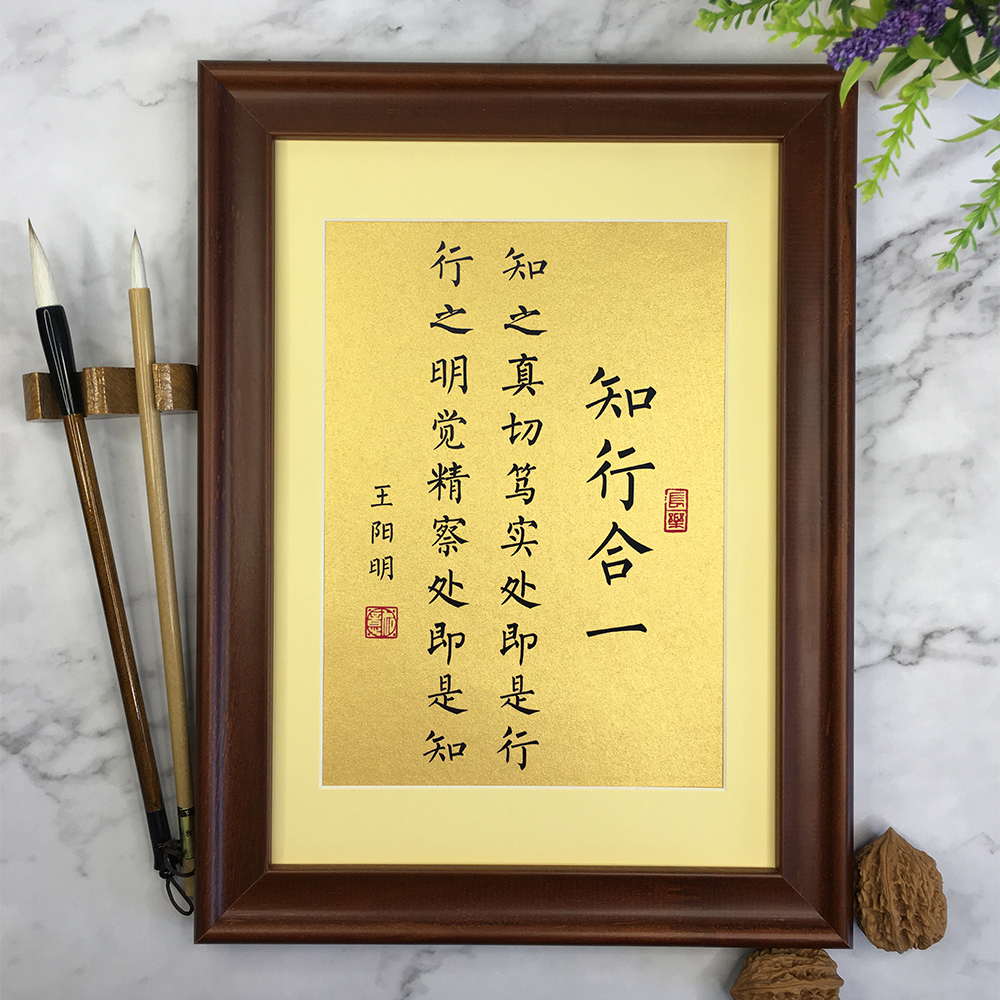 知行合一
长乐
知之真切笃实处即是行
行之明觉精察处即是知
王阳明